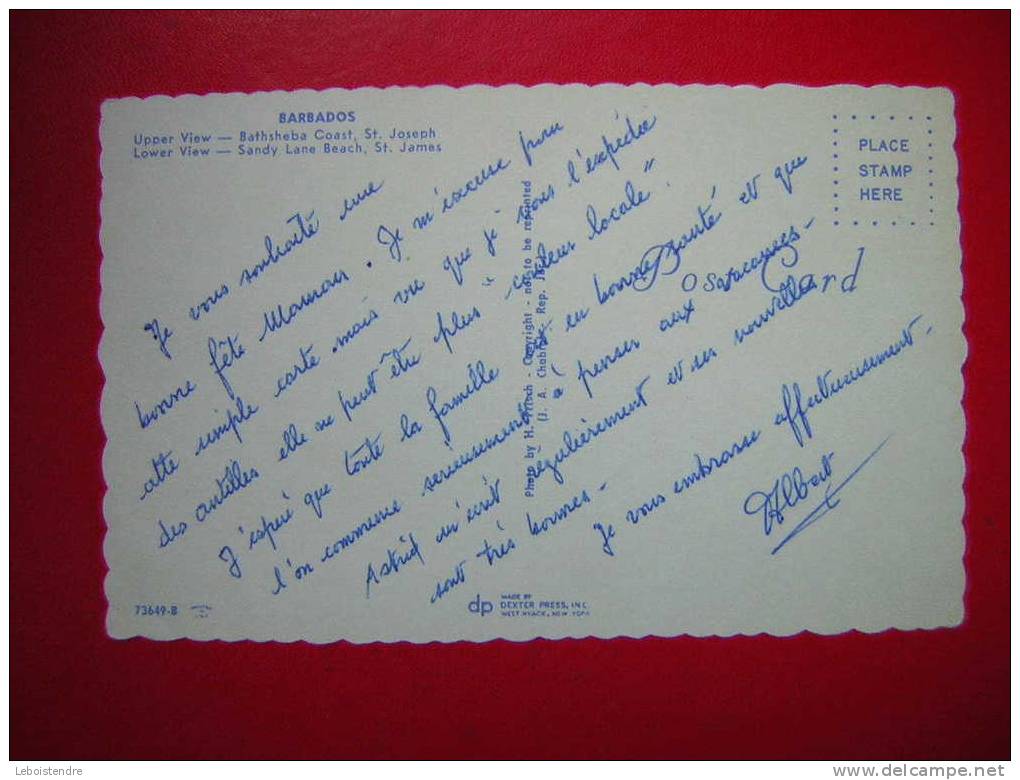 BARBADOS
Upper View — Bathsheba Coast, St. Joseph
Lower View — Sandy Lane Beach, St. James
PLACE
STAMP
HERE
Post Card
Je vous souhaite une
bonne fête Maman. Je m'éxcuse pour
cette simple carte mais vu que je vous l'expédie
des antilles elle ne peut être plus "couleur locale".
J'espère que toute la famille est en bonne santé et que
l'on commence sérieusement à penser aux vacances-
Astrid m'écrit régulièrement et ses nouvelles
sont très bonnes-
Je vous embrasse affectueusement.
Albert
Photo by H. - Copyright - not to be reprinted
(J. A. Rep.
73649-B
dp
MADE BY
DEXTER PRESS, INC.
WEST NYACK, NEW YORK
Leboistendre
delcampe.net